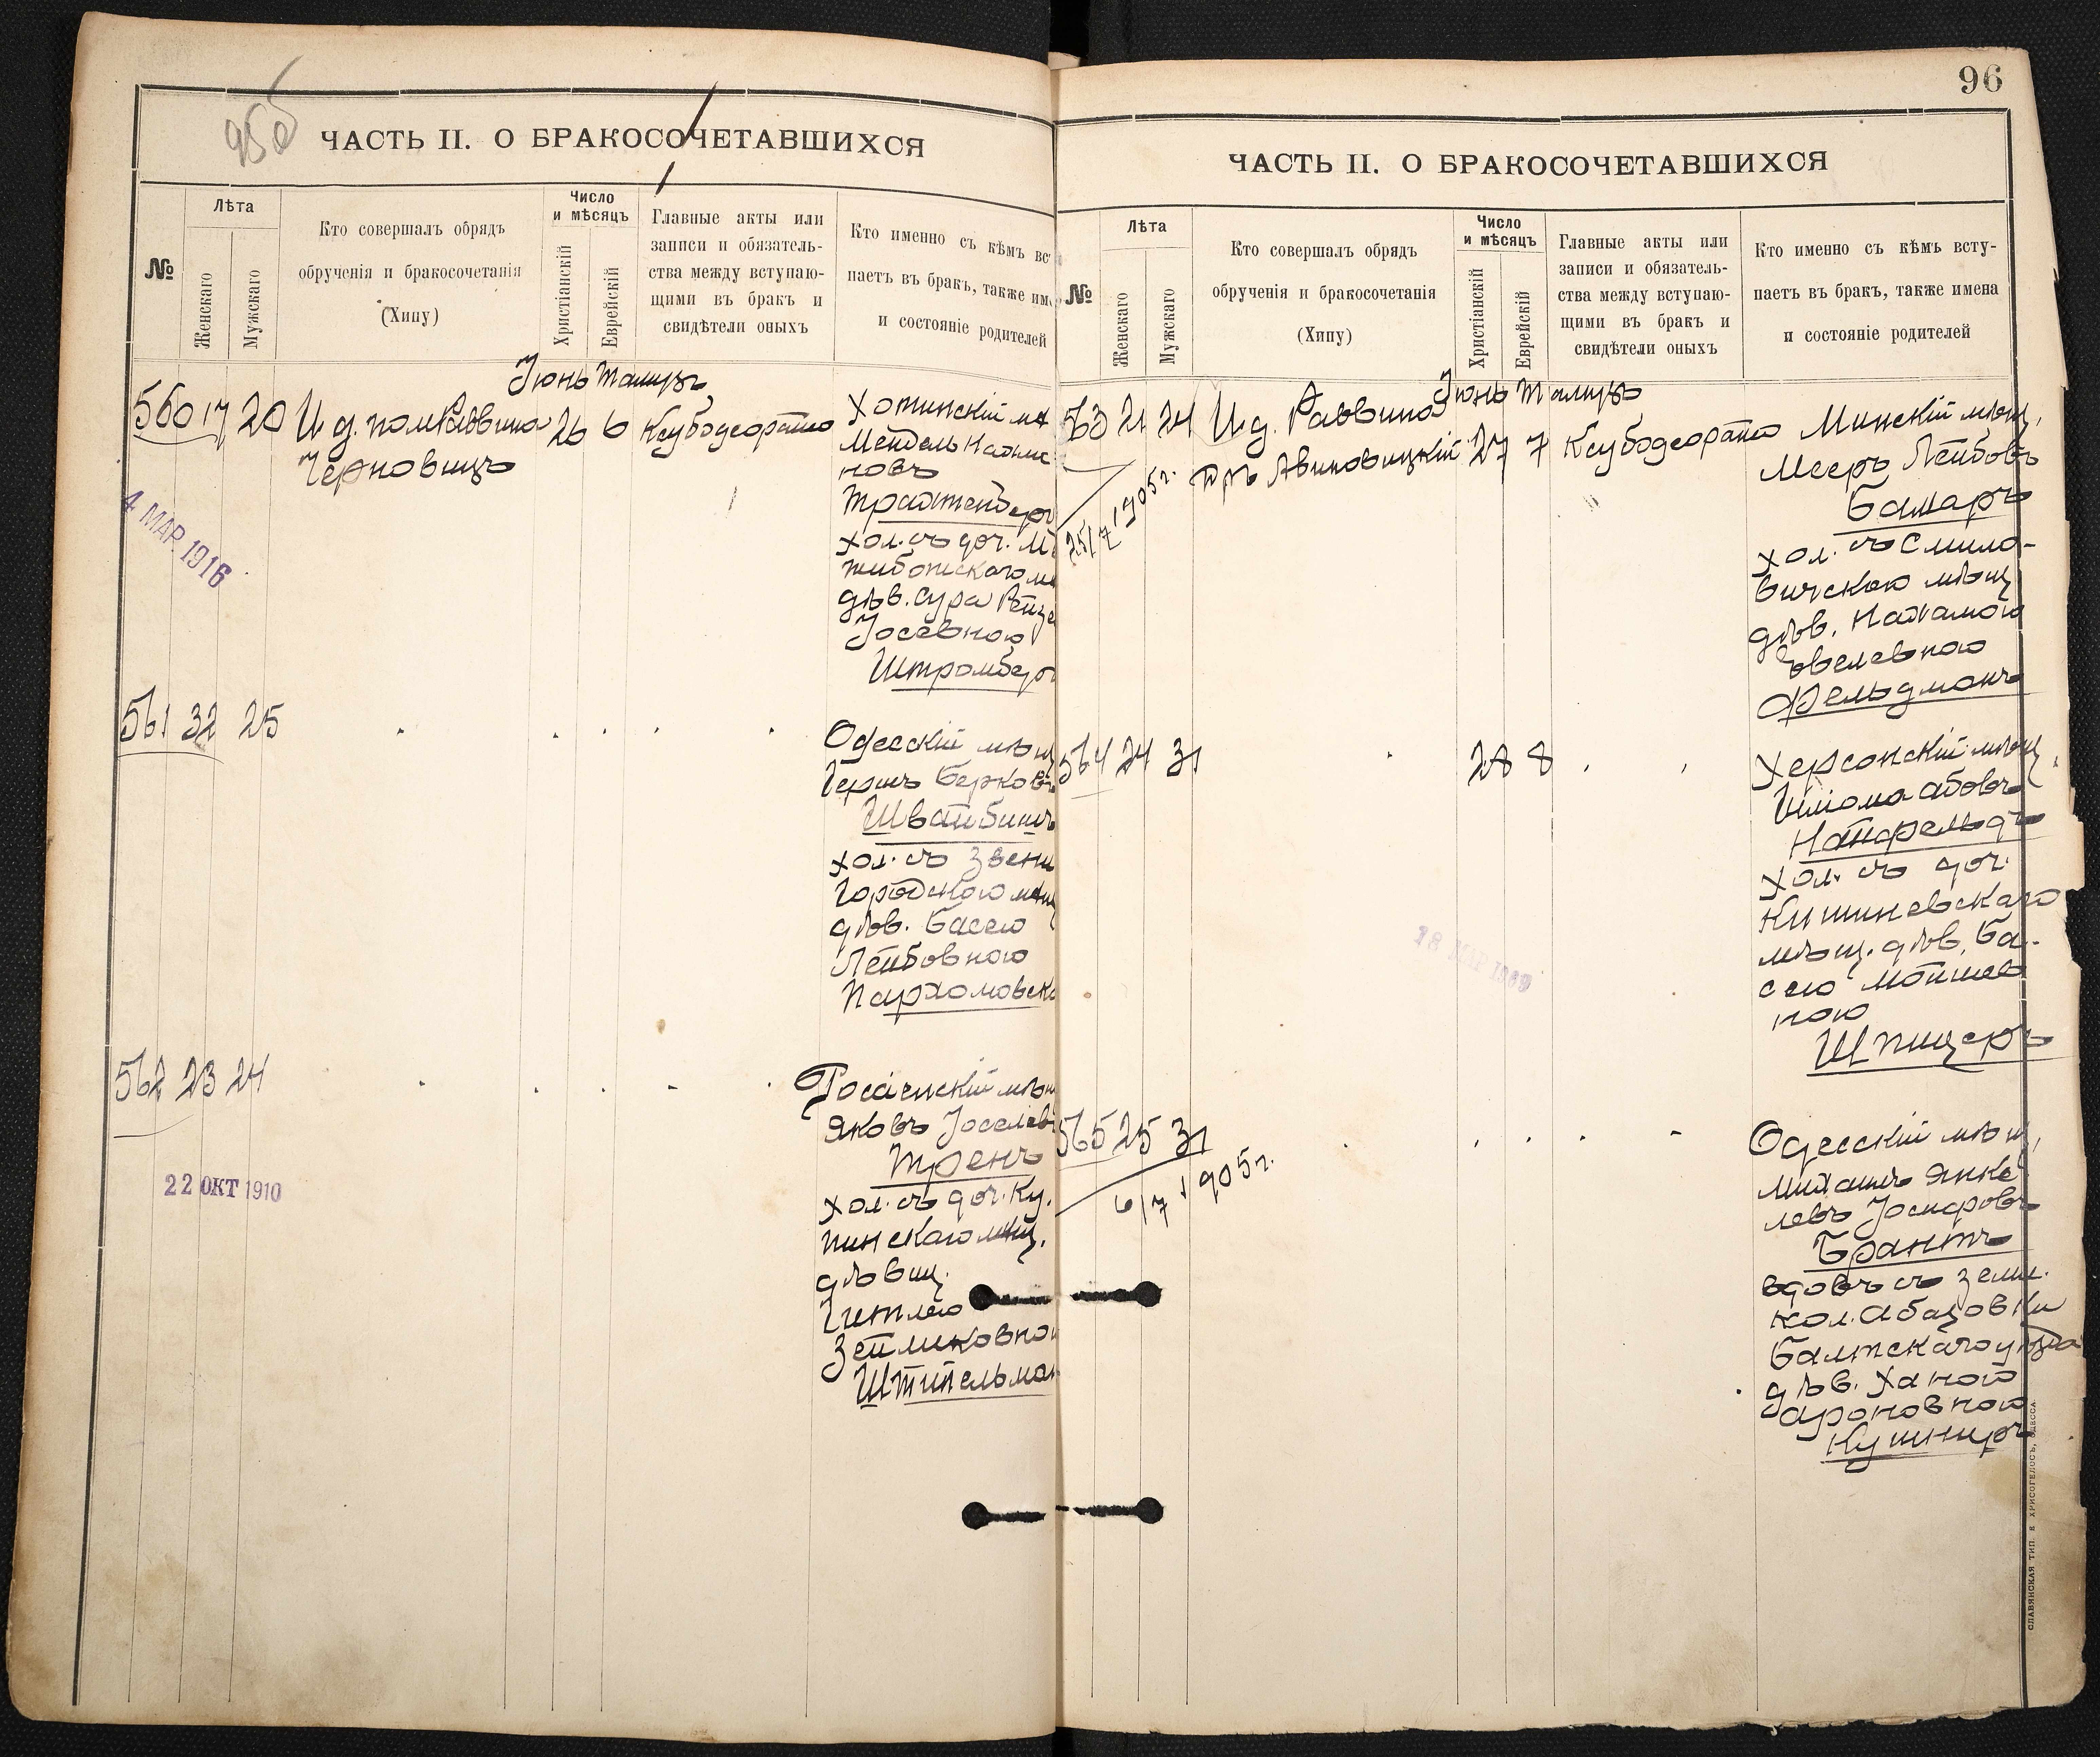 95об
ЧАСТЬ II. О БРАКОСОЧЕТАВШИХСЯ
№
Лѣта
Женскаго
Мужскаго
Кто совершалъ обрядъ
обрученія и бракосочетанія
(Хипу)
Число
и мѣсяцъ
Христіанскій
Еврейскій
Главные акты или
записи и обязатель-
ства между вступаю-
щими въ бракъ и
свидѣтели оныхъ
Кто именно съ кѣмъ вс
паетъ въ бракъ, также им
и состояніе родителей
Іюнь Тамузъ
560 17 20 И.д. пом. Раввина 26 6 Ксубодеорато
Черновицъ
Хотинскій
Мендель
новъ
Трахтенберг
хол. съ доч.
дѣв. Сура
Іосевною
Штромберг
4 МАР. 1916
561 32 25
Одесскій мѣщ
Гершъ Берковъ
Швайбишъ
хол. съ Звени
городскою мѣщ
дѣв. Басею
Лейбовною
Пархомовск
562 23 24
Росіенскій мѣщ
Яковъ Іоселев
Тренъ
хол. съ доч. Ку-
пинскаго мѣщ.
дѣвиц.
Гитлею
Зейликовно
Штипельман
22 ОКТ 1910
96
ЧАСТЬ II. О БРАКОСОЧЕТАВШИХСЯ
№
Лѣта
Женскаго
Мужскаго
Кто совершалъ обрядъ
обрученія и бракосочетанія
(Хипу)
Число
и мѣсяцъ
Христіанскій
Еврейскій
Главные акты или
записи и обязатель-
ства между вступаю-
щими въ бракъ и
свидѣтели оныхъ
Кто именно съ кѣмъ всту-
паетъ въ бракъ, также имена
и состояніе родителей
Іюнь Тамузъ
563 21 24 И.д. Раввина 27 7 Ксубодеорато
Дръ Авиновицкій
25/7 1905 г.
Минскій мѣщ,
Мееръ Лейбовъ
Бамаръ
хол. съ Смило-
вичскою мѣщ
дѣв. Нахамою
Іовелевною
Фельдманъ
564 24 31 28 8
Херсонскій мѣщ,
Шліома Абовъ
Найфельдъ
хол. съ доч.
Кишиневскаго
мѣщ. дѣв. Ба-
сею Мойшев
ною
Шпицеръ
565 25 31
6/7 1905 г.
Одесскій мѣщ,
Михаилъ Янке-
левъ
Брантъ
вдовъ съ земл.
кол. Абазовки
Балтскаго уѣзда
дѣв. Ханою
Ароновною
Кушниръ
СЛАВЯНСКАЯ ТИП. Е ХРИСОГЕЛОСЪ, ОДЕССА